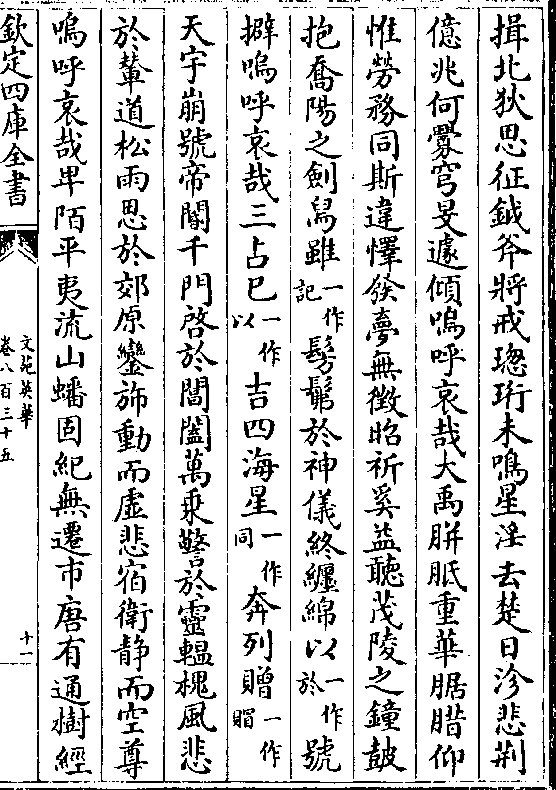 揖北狄思征鉞斧將戒璁珩未鳴星淫去楚日沴悲荆
億兆何釁穹旻遽傾嗚呼哀哉大禹胼胝重華腒腊仰
惟勞務同斯違懌發夢無徵昭祈奚益聽茂陵之鐘鼓
抱喬陽之劍舄雖一作記髣髴於神儀終纏綿以一作於號
擗嗚呼哀哉三占巳一作以吉四海星一作同奔列贈一作賵
天宇崩號帝閽千門啓於閶闔萬乘警於靈輼槐風悲
於輦道松雨思於郊原鑾斾動而虛悲宿衛静而空尊
嗚呼哀哉畢陌平夷流山蟠固紀無遷市唐有通樹經
欽定四庫全書
文苑英華
卷八百三十五
十一